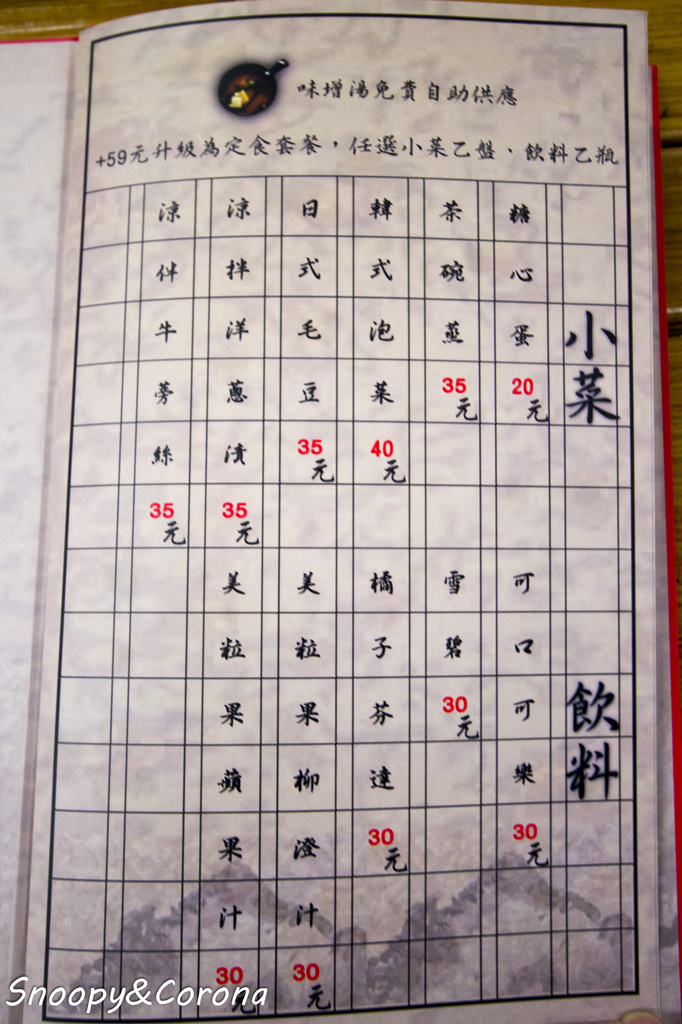 味增湯免費自助供應
+59元升級為定食套餐，任選小菜乙盤、飲料乙瓶
小菜
糖心蛋20元
茶碗蒸35元
韓式泡菜40元
日式毛豆35元
涼拌洋蔥漬35元
涼伴牛蒡絲35元
飲料
可口可樂30元
雪碧30元
橘子芬達30元
美粒果柳澄汁30元
美粒果蘋果汁30元
Snoopy&Corona